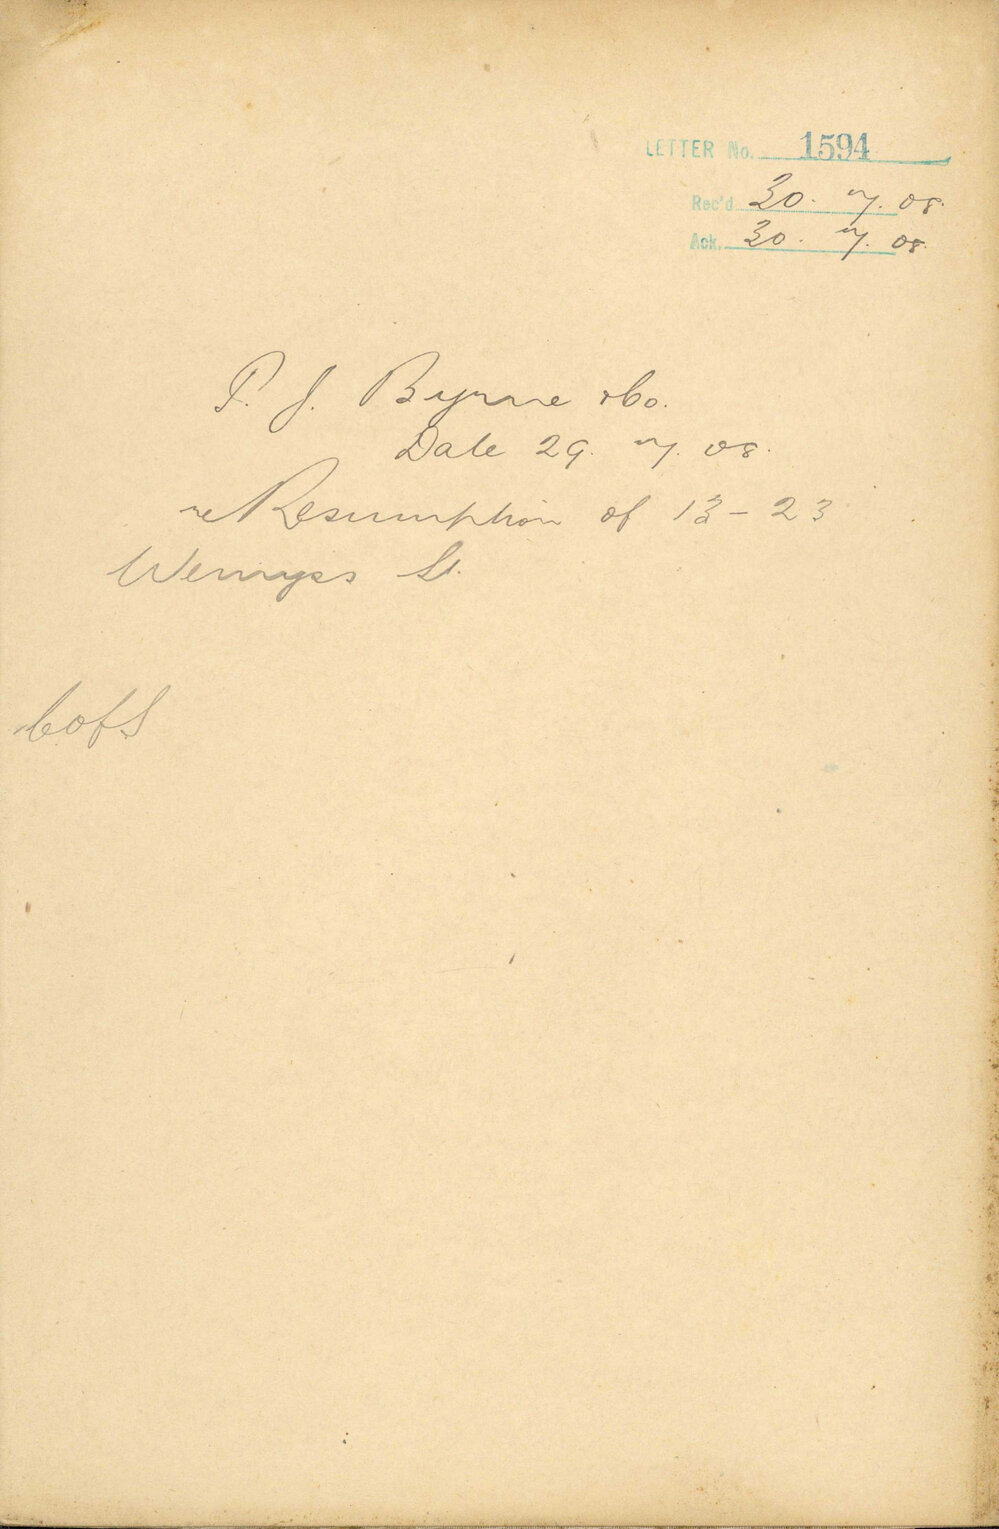 LETTER No. 1594
Rec'd 30. 7. 08.
Ack. 30. 7. 08.
P. J. Byrne & Co.
Date 29. 7. 08.
re Resumption of 13 - 23
Wemyss St.
C of S